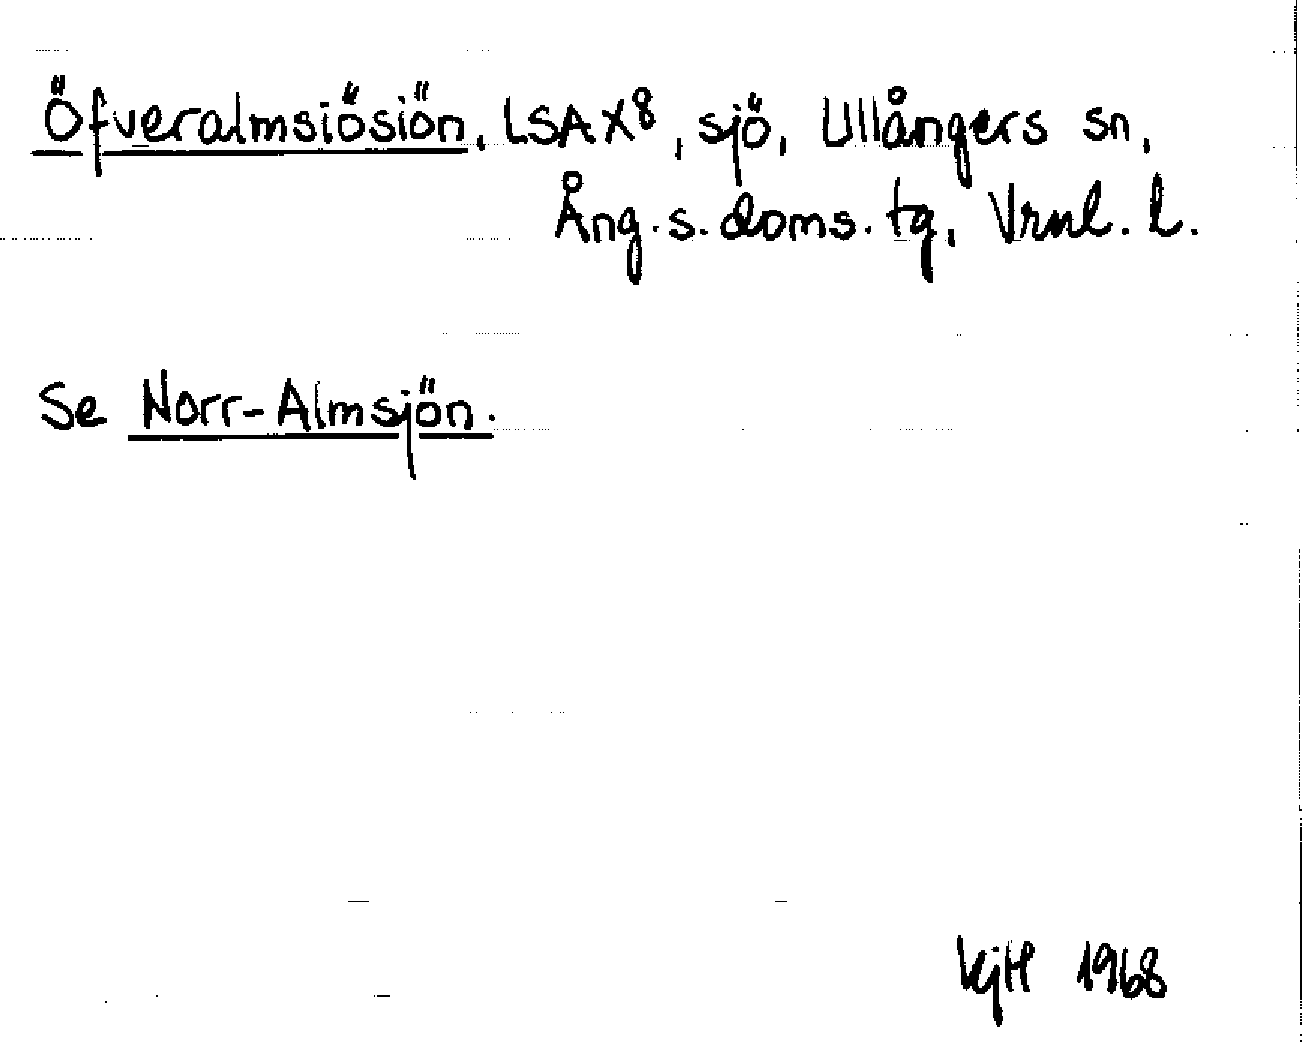 Öfveralmsiösiön, LSA X8, sjö, Ullångers sn,
Ång. s. doms. tg, Vrnl. l.
Se Norr-Almsjön.
KjH 1968